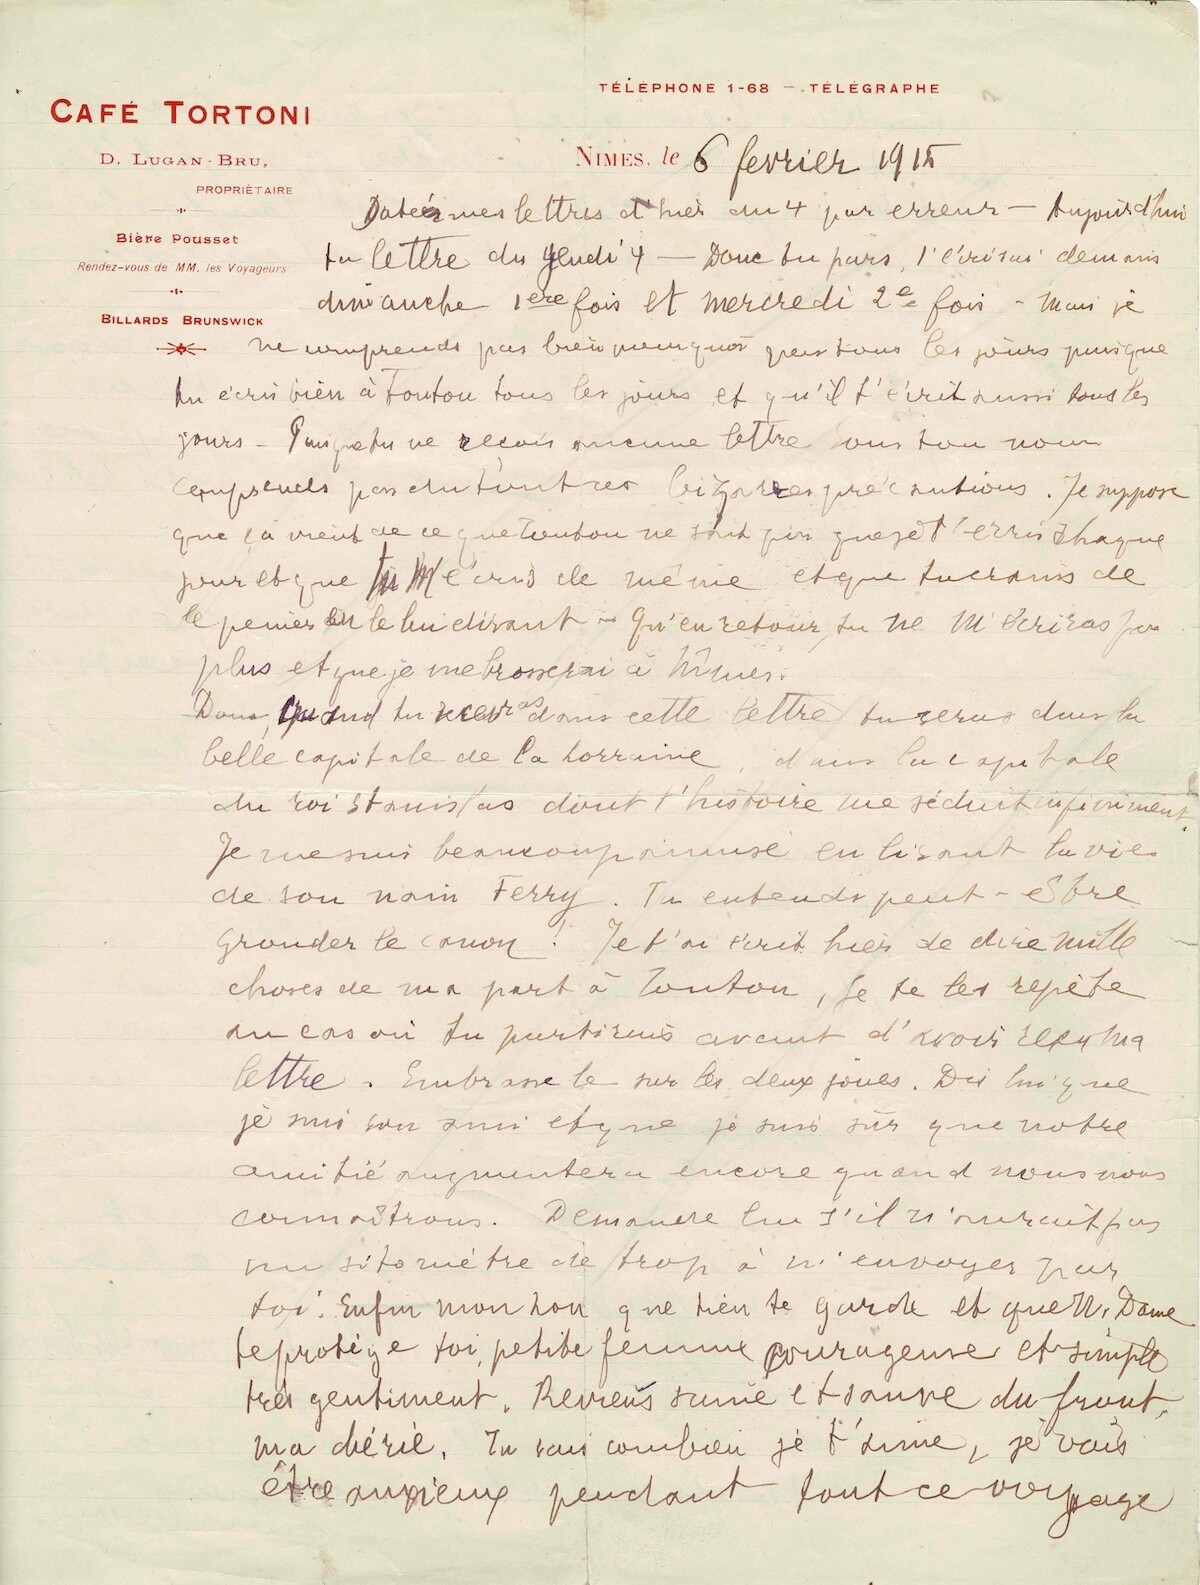 TÉLÉPHONE 1-68 — TÉLÉGRAPHE
CAFÉ TORTONI
D. LUGAN-BRU,
PROPRIÉTAIRE
Bière Pousset
Rendez-vous de MM. les Voyageurs
BILLARDS BRUNSWICK
NIMES, le 6 fevrier 1915
Datées mes lettres d'hier du 4 par erreur — Aujourd'hui
ta lettre du Jeudi 4 — Donc tu pars, t'écrirai demain
dimanche 1ere fois et mercredi 2e fois - Mais je
ne comprends pas bien pourquoi pas tous les jours puisque
tu écris bien à Toutou tous les jours et qu'il t'écrit aussi tous les
jours - Puisque tu ne reçois aucune lettre sous ton nom
comprends pas du tout ces bizarres précautions. Je suppose
que ça vient de ce que Toutou ne sait pas que je t'écris chaque
jour et que tu m'écris de même et que tu crains de
le peiner en le lui disant - Qu'en retour, tu ne m'écriras pas
plus et que je me brosserai à Nîmes.
Donc, quand tu recevras donc cette lettre tu seras dans la
belle capitale de la Lorraine, dans la capitale
du roi Stanislas dont l'histoire me séduit infiniment.
Je me suis beaucoup amusé en lisant la vie
de son nain Ferry. Tu entends peut-être
gronder le canon! Je t'ai écrit hier de dire mille
choses de ma part à Toutou, je te les répète
au cas où tu partirais avant d'avoir reçu ma
lettre. Embrasse le sur les deux joues. Dis lui que
je suis son ami et que je suis sûr que notre
amitié augmentera encore quand nous nous
connaîtrons. Demande lui s'il n'aurait pas
un sitomètre de trop à m'envoyer par
toi. Enfin mon Lou que rien te garde et que N. Dame
te protège toi, petite femme courageuse et simple
très gentiment. Reviens saine et sauve du front,
ma chérie. Tu sais combien je t'aime, je vais
être anxieux pendant tout ce voyage